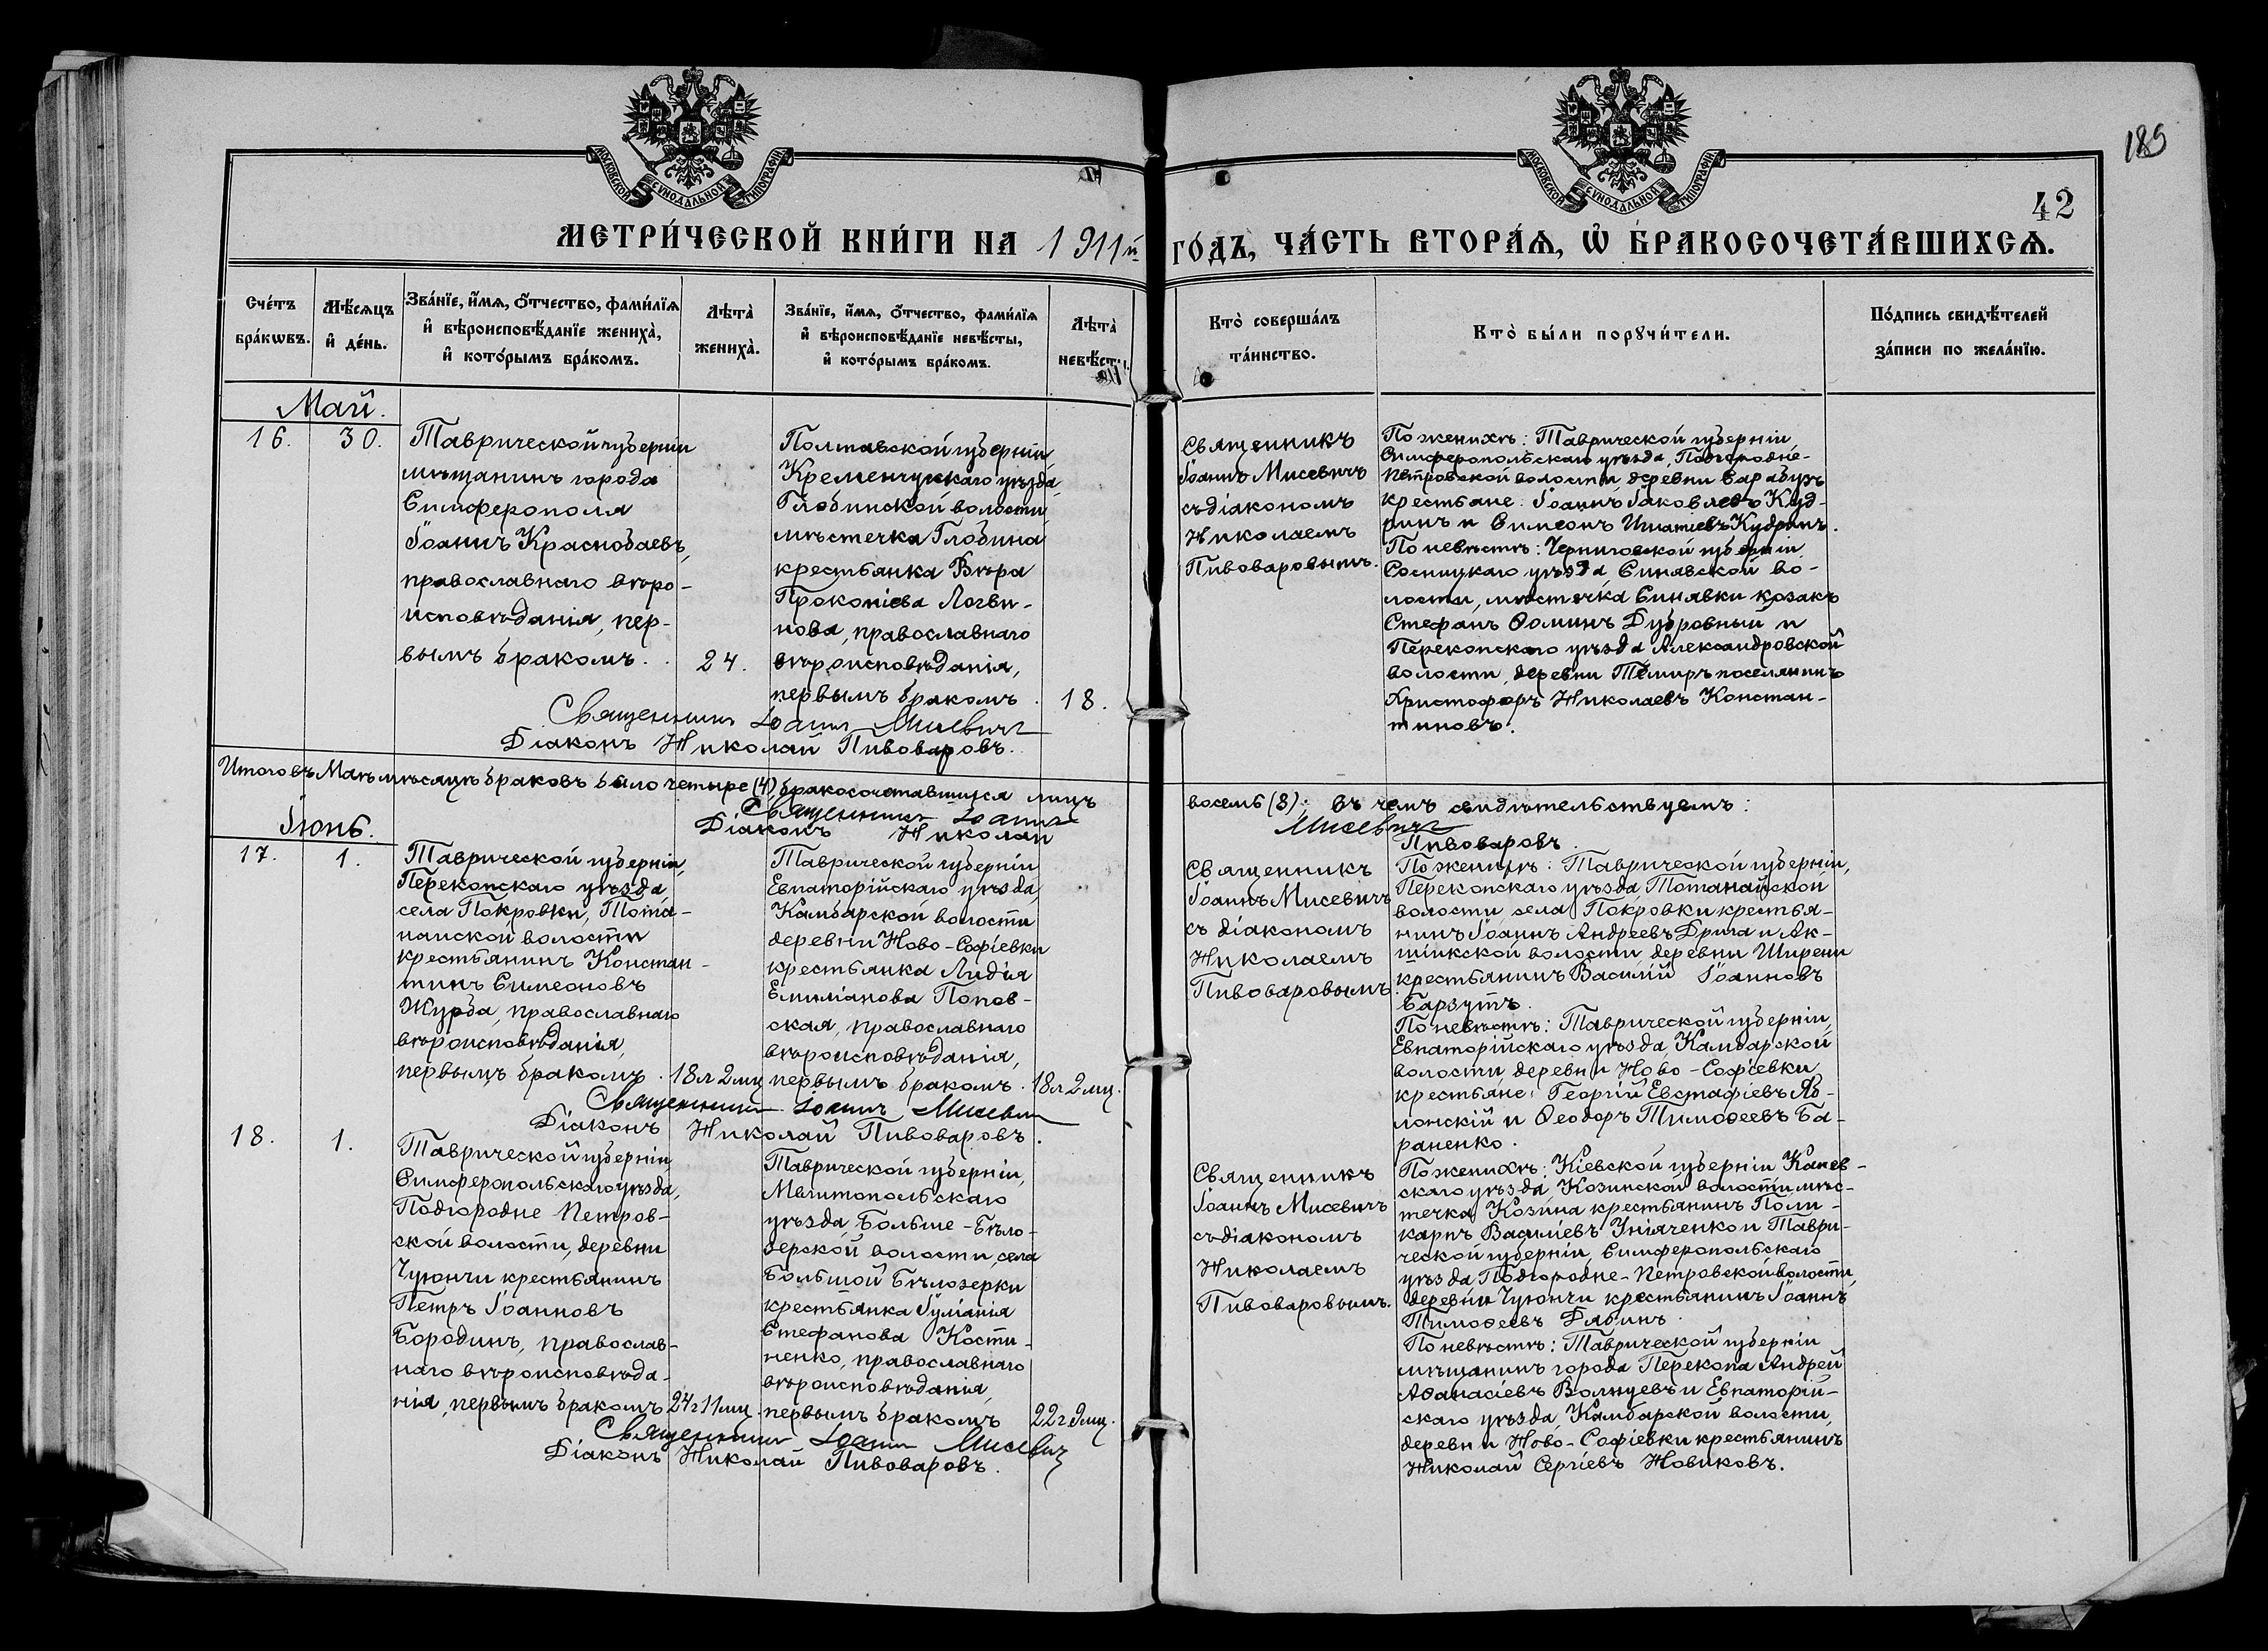 189
42
МОСКОВСКОЙ СѴНОДАЛЬНОЙ ТИПОГРАФІИ
МОСКОВСКОЙ СѴНОДАЛЬНОЙ ТИПОГРАФІИ
МЕТРИ́ЧЕСКОЙ КНИ́ГИ НА 1911й ГО́ДЪ, ЧА́СТЬ ВТОРА́Ѧ, Ѿ БРАКОСОЧЕТА́ВШИХСѦ.
Сче́тъ
бра́кѡвъ.
Мѣ́сѧцъ
и҆ де́нь.
Зва́нїе, и҆́мѧ, ѻ҆́тчество, фами́лїѧ
и҆ вѣроисповѣ́данїе жениха̀,
и҆ кото́рымъ бра́комъ.
Лѣта̀
жениха̀.
Зва́нїе, и҆́мѧ, ѻ҆́тчество, фами́лїѧ
и҆ вѣроисповѣ́данїе невѣ́сты,
и҆ кото́рымъ бра́комъ.
Лѣта̀
невѣ́сты.
Кто̀ соверша́лъ
та́инство.
Кто̀ бы́ли порꙋчи́тели.
По́дпись свидѣ́телей
за́писи по жела́нїю.
Май.
16.
30.
Таврической губерніи
мѣщанинъ города
Симферополя
Іоаннъ Краснобаевъ,
православнаго вѣро-
исповѣданія, пер-
вымъ бракомъ.
24.
Полтавской губерніи,
Кременчугскаго уѣзда,
Глобинской волости,
мѣстечка Глобина
крестьянка Вѣра
Прокопіева Логви-
нова, православнаго
вѣроисповѣданія,
первымъ бракомъ.
18.
Священникъ
Іоаннъ Мисевичъ
съ діакономъ
Николаемъ
Пивоваровымъ.
По женихѣ: Таврической губерніи,
Симферопольскаго уѣзда, Подгородне-
Петровской волости, деревни Сарабузъ
крестьяне: Іоаннъ Іаковлевъ Куд-
ринъ и Симеонъ Игнатіевъ Кудринъ.
По невѣстѣ: Черниговской губерніи
Сосницкаго уѣзда, Синявской во-
лости, мѣстечка Синявки козакъ
Стефанъ Ѳоминъ Дубровный и
Перекопскаго уѣзда Александровской
волости, деревни Темиръ поселянинъ
Христофоръ Николаевъ Констан-
тиновъ.
Священникъ Іоаннъ Мисевичъ
Діаконъ Николай Пивоваровъ.
Итого въ Маѣ мѣсяцѣ браковъ было четыре (4) бракосочетавшихся лицъ восемь (8); въ чемъ свидѣтельствуемъ:
Священникъ Іоаннъ Мисевичъ
Діаконъ Николай Пивоваровъ.
Іюнь.
17.
1.
Таврической губерніи,
Перекопскаго уѣзда,
села Покровки, Тота-
найской волости
крестьянинъ Констан-
тинъ Симеоновъ
Журба, православнаго
вѣроисповѣданія,
первымъ бракомъ.
18 л 2 мц
Таврической губерніи,
Евпаторійскаго уѣзда,
Камбарской волости
деревни Ново-Софіевки
крестьянка Лидія
Емиліанова Попов-
ская, православнаго
вѣроисповѣданія,
первымъ бракомъ.
18 л 2 мц.
Священникъ
Іоаннъ Мисевичъ
съ діакономъ
Николаемъ
Пивоваровымъ.
По женихѣ: Таврической губерніи,
Перекопскаго уѣзда Тотанайской
волости села Покровки крестья-
нинъ Іоаннъ Андреевъ Дрига и Ак-
шикской волости, деревни Ширени
крестьянинъ Василій Іоанновъ
Барзутъ.
По невѣстѣ: Таврической губерніи,
Евпаторійскаго уѣзда, Камбарской
волости деревни Ново-Софіевки
крестьяне: Георгій Евстафіевъ Яб-
лонскій и Ѳеодоръ Тимоѳеевъ Ба-
раненко.
Священникъ Іоаннъ Мисевичъ
Діаконъ Николай Пивоваровъ.
18.
1.
Таврической губерніи,
Симферопольскаго уѣзда,
Подгородне Петров-
ской волости, деревни
Чуюнчи крестьянинъ
Петръ Іоанновъ
Бородинъ, православ-
наго вѣроисповѣда-
нія, первымъ бракомъ
24 г 11 мц.
Таврической губерніи,
Мелитопольскаго
уѣзда, Больше-Бѣло-
зерской волости, села
Большой Бѣлозерки
крестьянка Іуліанія
Стефанова Кости-
ненко, православнаго
вѣроисповѣданія,
первымъ бракомъ
22 г 9 мц.
Священникъ
Іоаннъ Мисевичъ
съ діакономъ
Николаемъ
Пивоваровымъ.
По женихѣ: Кіевской губерніи Канев-
скаго уѣзда, Козинской волости мѣс-
течка Козина крестьянинъ Поли-
карпъ Василіевъ Уніяченко и Таври-
ческой губерніи, Симферопольскаго
уѣзда Подгородне-Петровской волости,
деревни Чуюнчи крестьянинъ Іоаннъ
Тимоѳеевъ Дябинъ.
По невѣстѣ: Таврической губерніи
мѣщанинъ города Перекопа Андрей
Аѳанасіевъ Волнуевъ и Евпаторій-
скаго уѣзда, Камбарской волости,
деревни Ново-Софіевки крестьянинъ
Николай Сергіевъ Новиковъ.
Священникъ Іоаннъ Мисевичъ
Діаконъ Николай Пивоваровъ.